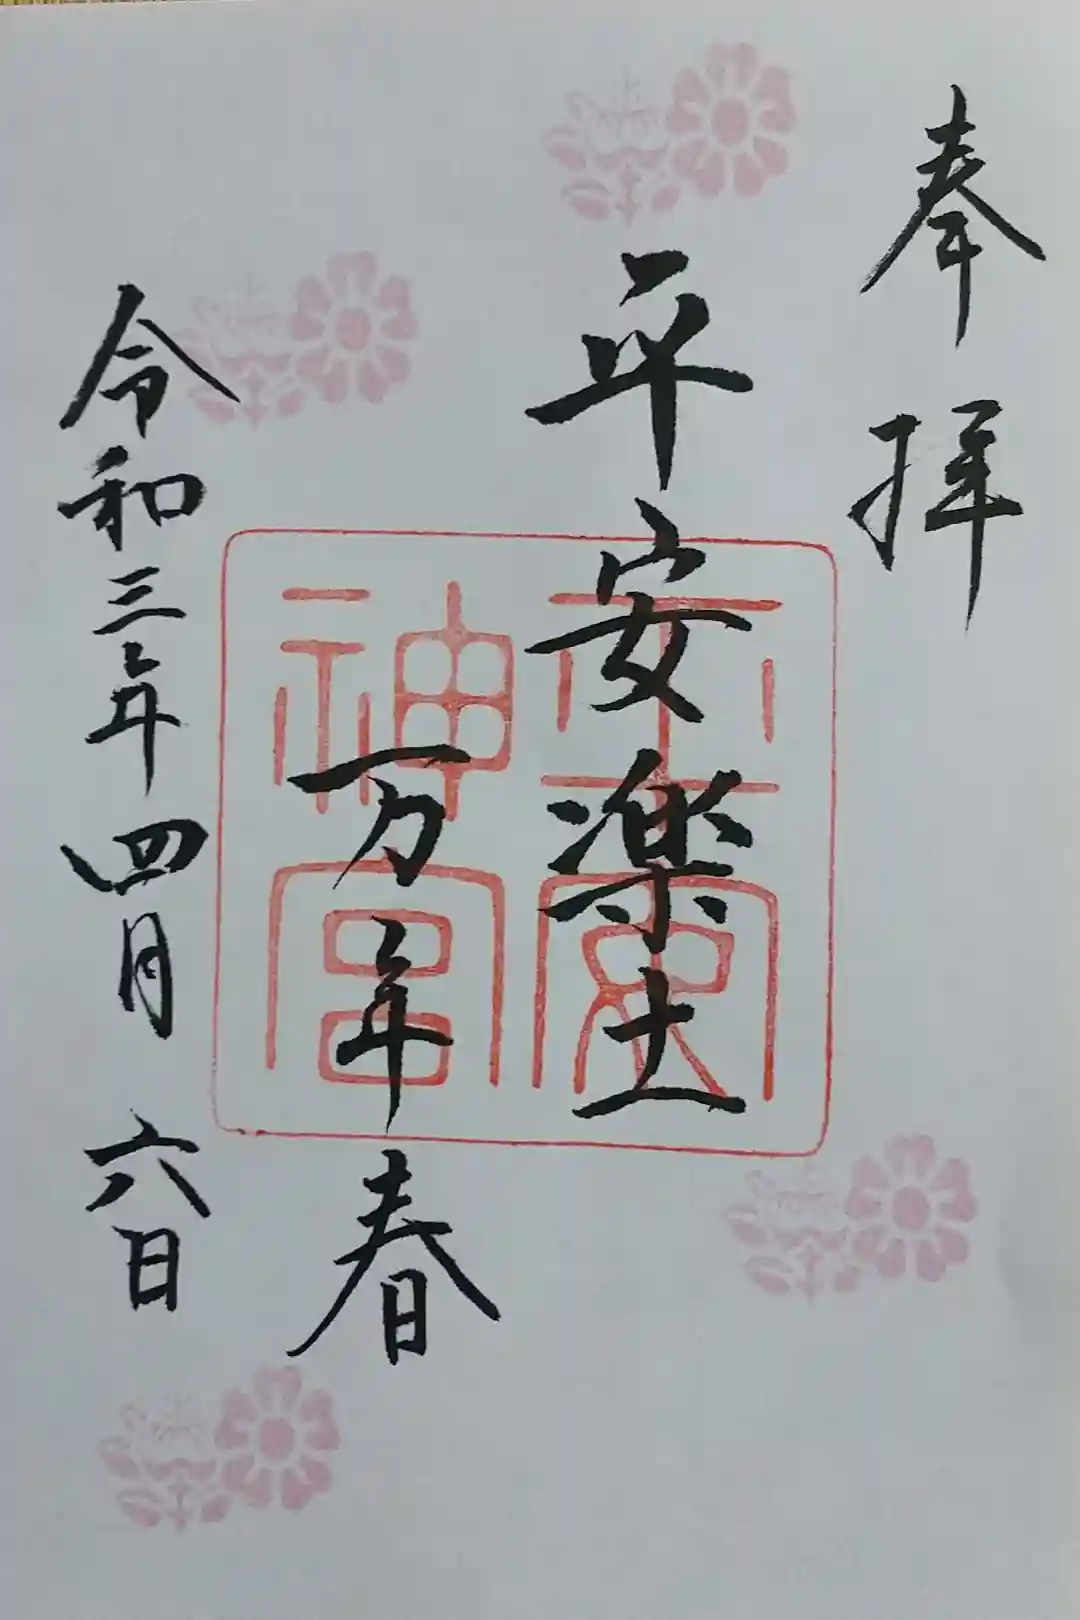 奉拝
平安楽土
万年春
令和三年四月六日
平安
神宮